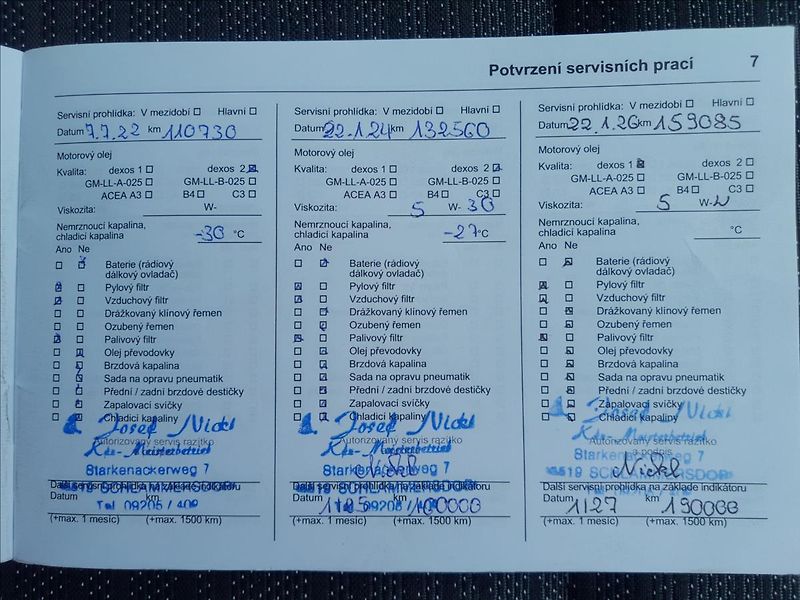 Potvrzení servisních prací 7
Servisní prohlídka: V mezidobí Hlavní
Datum 7.7.22 km 110730
Motorový olej
Kvalita: dexos 1 dexos 2
GM-LL-A-025 GM-LL-B-025
ACEA A3 B4 C3
Viskozita: W-
Nemrznoucí kapalina,
chladicí kapalina -30 °C
Ano Ne
Baterie (rádiový
dálkový ovladač)
Pylový filtr
Vzduchový filtr
Drážkovaný klínový řemen
Ozubený řemen
Palivový filtr
Olej převodovky
Brzdová kapalina
Sada na opravu pneumatik
Přední / zadní brzdové destičky
Zapalovací svíčky
Chladicí kapaliny
Josef Nickl
Autorizovaný servis razítko
Kfz-Meisterbetrieb
Starkenackerweg 7
Další servisní prohlídka na základě indikátoru
Datum km
Tel 09205 / 409
(+max. 1 měsíc) (+max. 1500 km)
Servisní prohlídka: V mezidobí Hlavní
Datum 22.1.24 km 132560
Motorový olej
Kvalita: dexos 1 dexos 2
GM-LL-A-025 GM-LL-B-025
ACEA A3 B4 C3
Viskozita: 5 W- 30
Nemrznoucí kapalina,
chladicí kapalina -27 °C
Ano Ne
Baterie (rádiový
dálkový ovladač)
Pylový filtr
Vzduchový filtr
Drážkovaný klínový řemen
Ozubený řemen
Palivový filtr
Olej převodovky
Brzdová kapalina
Sada na opravu pneumatik
Přední / zadní brzdové destičky
Zapalovací svíčky
Chladicí kapaliny
Josef Nickl
Autorizovaný servis razítko
Kfz-Meisterbetrieb
Starkenackerweg 7
Nickl
Další servisní prohlídka na základě indikátoru
Datum km
(+max. 1 měsíc) (+max. 1500 km)
Servisní prohlídka: V mezidobí Hlavní
Datum 22.1.26 km 159085
Motorový olej
Kvalita: dexos 1 dexos 2
GM-LL-A-025 GM-LL-B-025
ACEA A3 B4 C3
Viskozita: 5 W-
Nemrznoucí kapalina,
chladicí kapalina °C
Ano Ne
Baterie (rádiový
dálkový ovladač)
Pylový filtr
Vzduchový filtr
Drážkovaný klínový řemen
Ozubený řemen
Palivový filtr
Olej převodovky
Brzdová kapalina
Sada na opravu pneumatik
Přední / zadní brzdové destičky
Zapalovací svíčky
Chladicí kapaliny
Josef Nickl
Kfz-Meisterbetrieb
Autorizovaný servis razítko
a podpis
Nickl
Další servisní prohlídka na základě indikátoru
Datum 1127 km 190000
(+max. 1 měsíc) (+max. 1500 km)